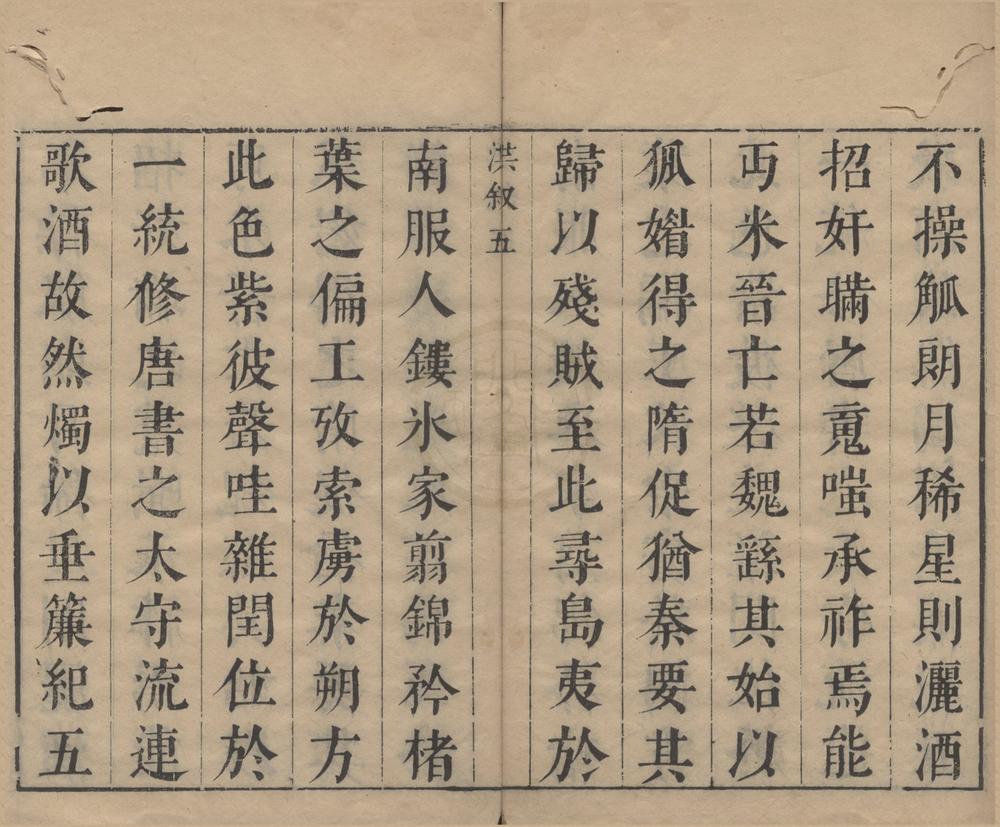 不操觚朗月稀星則灑酒
招奸瞞之䰟嗤承祚焉能
丏米晉亡若魏繇其始以
狐媚得之隋促猶秦要其
歸以殘賊至此尋島夷於
洪叙五
南服人鏤氷家翦錦矜楮
葉之偏工攷索虜於朔方
此色紫彼聲哇雜閏位於
一統修唐書之太守流連
歌酒故然燭以垂簾紀五